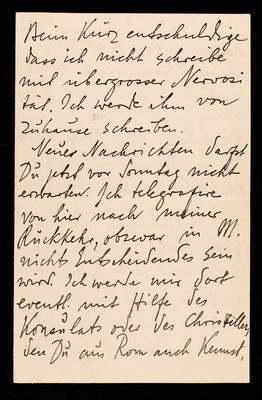 Beim Kurz entschuldige
dass ich nicht schreibe
mit übergrosser Nervosi
tät. Ich werde ihm von
zuhause schreiben.
Neues Nachrichten darfst
Du jetzt vor Sonntag nicht
erwarten. Ich telegrafire
von hier nach meiner
Rückkehr, obzwar in M.
nichts Entscheidendes sein
wird. Ich werde mir dort
eventl. mit Hilfe des
Konsulats oder des
den Du aus Rom auch kennst,